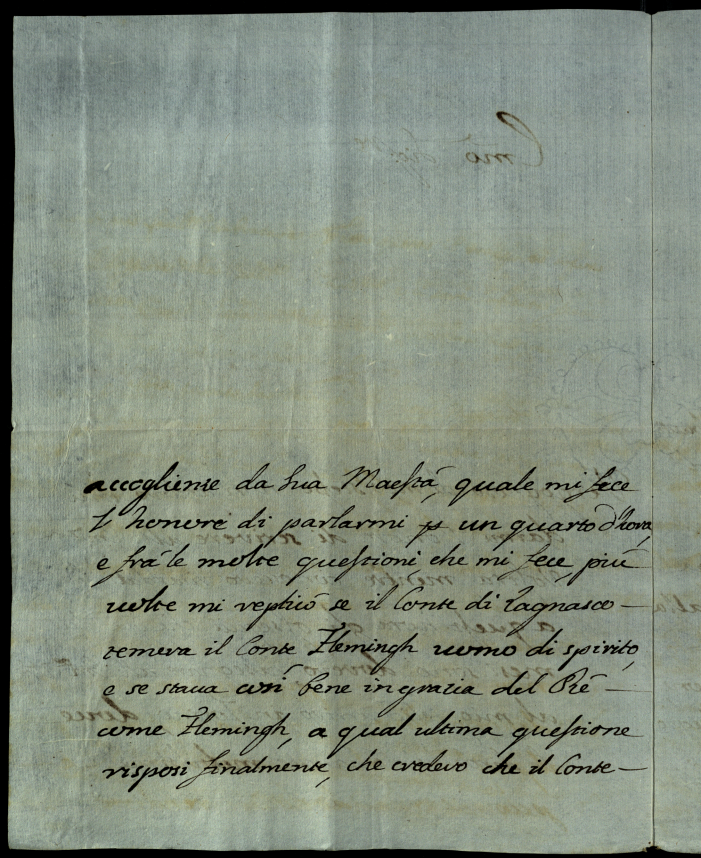 accogliense da Sua Maestà, quale mi fece
l'honore di parlarmi p un quarto d'hora,
e frà le molte questioni che mi fece, più
uolte mi replicò se il Conte di Lagnasco
temeva il Conte Flemingh uomo di spirito,
e se staua così bene in grazia del Rè
come Flemingh, a qual ultima questione
risposi finalmente, che credevo che il Conte